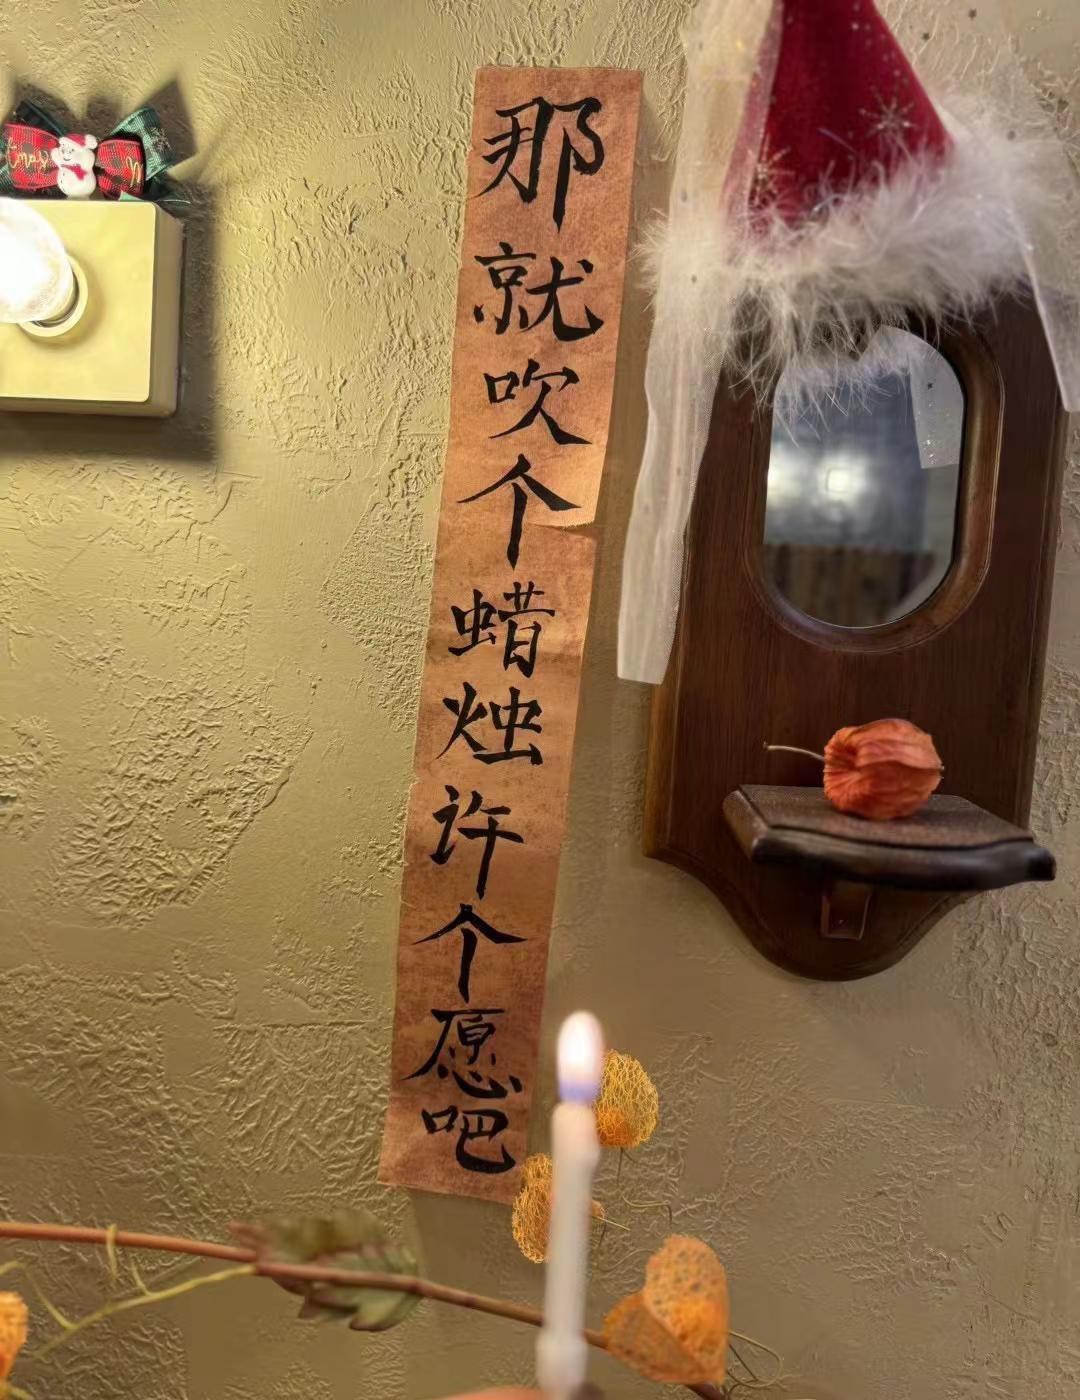 那就吹个蜡烛许个愿吧